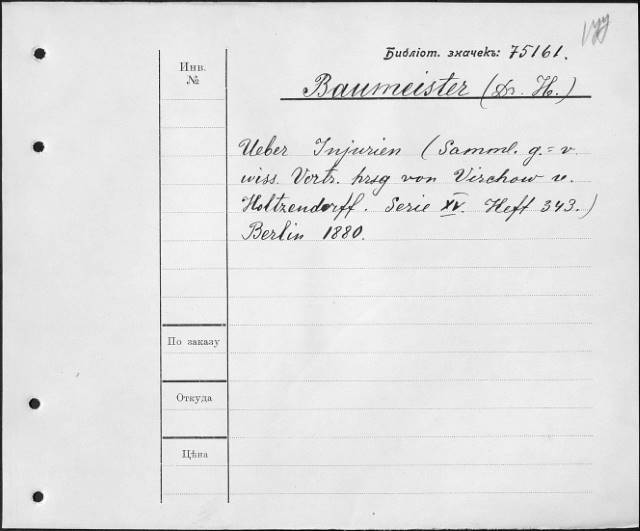 Библіот. значекъ: 75161.
Инв.
№
Baumeister (Dr. H.)
Ueber Injurien (Samml. g.=v.
wiss. Vortr. hrsg von Virchow u.
Holtzendorff. Serie XV. Heft 343.)
Berlin 1880.
По заказу
Откуда
Цѣна